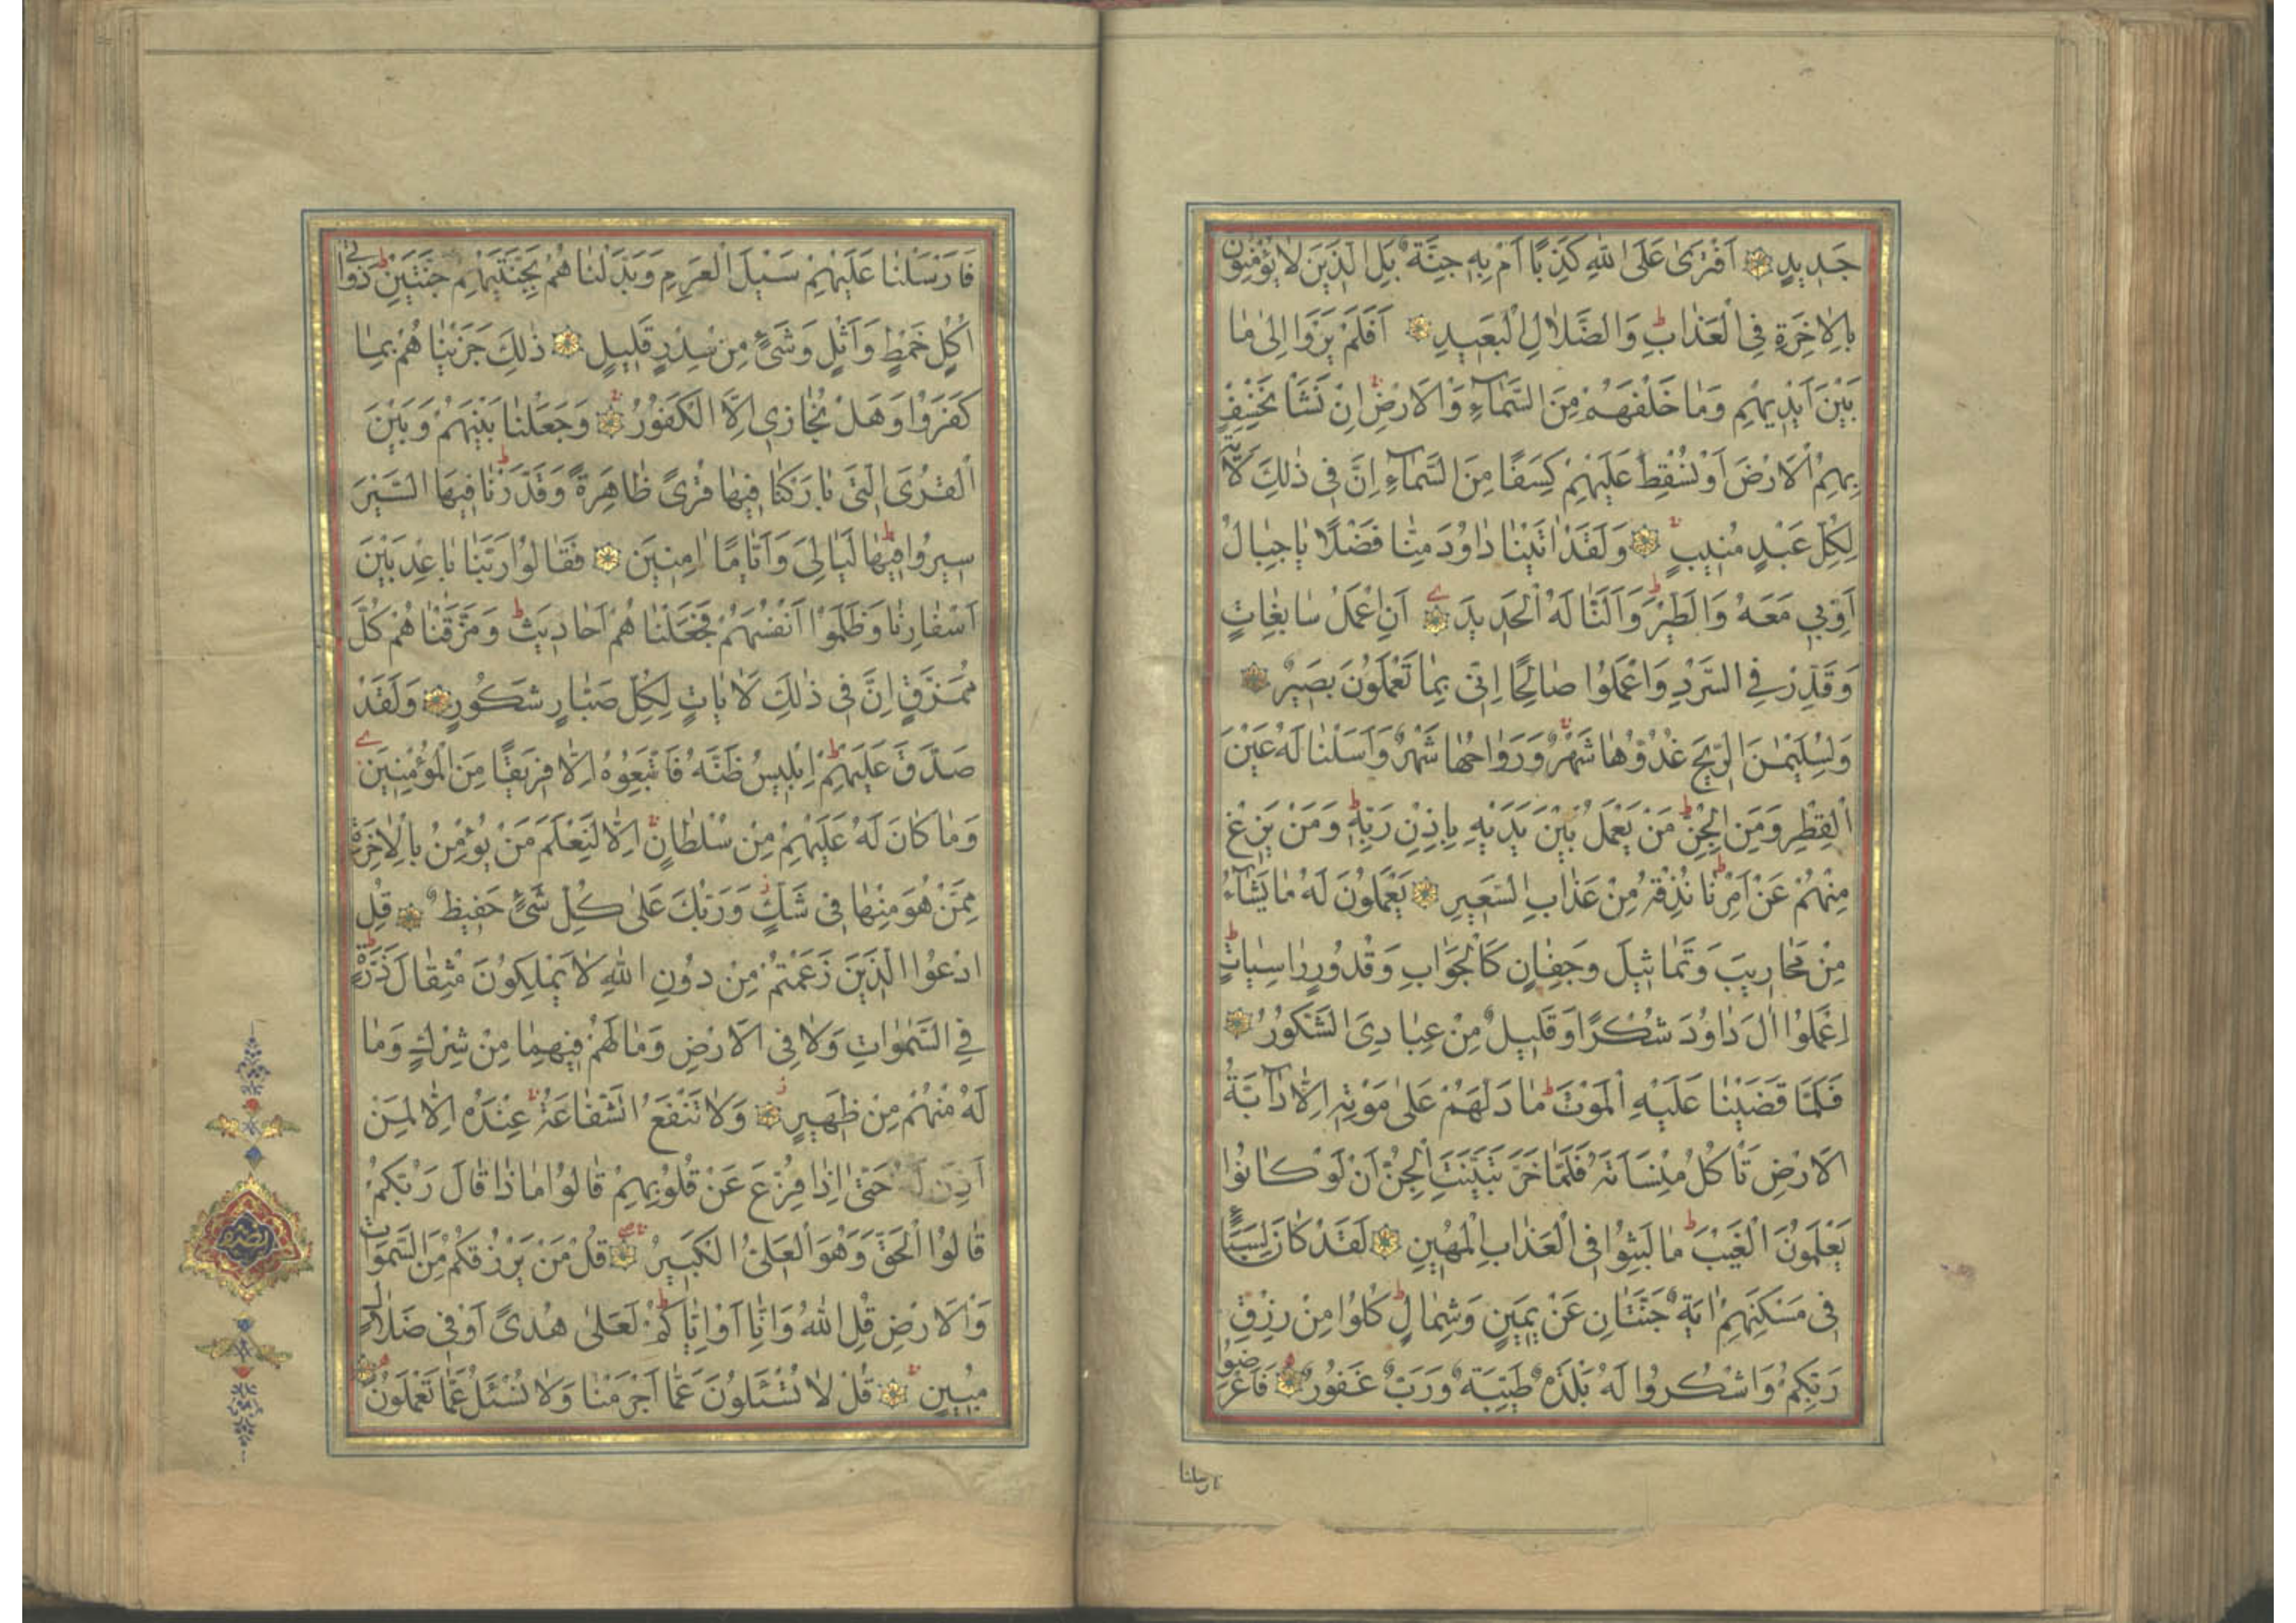 جَدِيدٍ اَفْتَرٰى عَلَى اللهِ كَذِبًا اَمْ بِهِ جِنَّةٌ بَلِ الَّذِينَ لَا يُؤْمِنُونَ
بِالْاٰخِرَةِ فِي الْعَذَابِ وَالضَّلَالِ الْبَعِيدِ اَفَلَمْ يَرَوْا اِلٰى مَا
بَيْنَ اَيْدِيهِمْ وَمَا خَلْفَهُمْ مِنَ السَّمَآءِ وَالْاَرْضِ اِنْ نَشَأْ نَخْسِفْ
بِهِمُ الْاَرْضَ اَوْ نُسْقِطْ عَلَيْهِمْ كِسَفًا مِنَ السَّمَآءِ اِنَّ فِي ذٰلِكَ لَاٰيَةً
لِكُلِّ عَبْدٍ مُنِيبٍ وَلَقَدْ اٰتَيْنَا دَاوُدَ مِنَّا فَضْلًا يَا جِبَالُ
اَوِّبِي مَعَهُ وَالطَّيْرَ وَاَلَنَّا لَهُ الْحَدِيدَ اَنِ اعْمَلْ سَابِغَاتٍ
وَقَدِّرْ فِي السَّرْدِ وَاعْمَلُوا صَالِحًا اِنِّي بِمَا تَعْمَلُونَ بَصِيرٌ
وَلِسُلَيْمٰنَ الرِّيحَ غُدُوُّهَا شَهْرٌ وَرَوَاحُهَا شَهْرٌ وَاَسَلْنَا لَهُ عَيْنَ
الْقِطْرِ وَمِنَ الْجِنِّ مَنْ يَعْمَلُ بَيْنَ يَدَيْهِ بِاِذْنِ رَبِّهِ وَمَنْ يَزِغْ
مِنْهُمْ عَنْ اَمْرِنَا نُذِقْهُ مِنْ عَذَابِ السَّعِيرِ يَعْمَلُونَ لَهُ مَا يَشَآءُ
مِنْ مَحَارِيبَ وَتَمَاثِيلَ وَجِفَانٍ كَالْجَوَابِ وَقُدُورٍ رَاسِيَاتٍ
اِعْمَلُوا اٰلَ دَاوُدَ شُكْرًا وَقَلِيلٌ مِنْ عِبَادِيَ الشَّكُورُ
فَلَمَّا قَضَيْنَا عَلَيْهِ الْمَوْتَ مَا دَلَّهُمْ عَلٰى مَوْتِهِ اِلَّا دَآبَّةُ
الْاَرْضِ تَأْكُلُ مِنْسَاَتَهُ فَلَمَّا خَرَّ تَبَيَّنَتِ الْجِنُّ اَنْ لَوْ كَانُوا
يَعْلَمُونَ الْغَيْبَ مَا لَبِثُوا فِي الْعَذَابِ الْمُهِينِ لَقَدْ كَانَ لِسَبَإٍ
فِي مَسْكَنِهِمْ اٰيَةٌ جَنَّتَانِ عَنْ يَمِينٍ وَشِمَالٍ كُلُوا مِنْ رِزْقِ
رَبِّكُمْ وَاشْكُرُوا لَهُ بَلْدَةٌ طَيِّبَةٌ وَرَبٌّ غَفُورٌ فَاَعْرَضُوا
فارسلنا
فَاَرْسَلْنَا عَلَيْهِمْ سَيْلَ الْعَرِمِ وَبَدَّلْنَاهُمْ بِجَنَّتَيْهِمْ جَنَّتَيْنِ ذَوَاتَيْ
اُكُلٍ خَمْطٍ وَاَثْلٍ وَشَيْءٍ مِنْ سِدْرٍ قَلِيلٍ ذٰلِكَ جَزَيْنَاهُمْ بِمَا
كَفَرُوا وَهَلْ نُجَازِي اِلَّا الْكَفُورَ وَجَعَلْنَا بَيْنَهُمْ وَبَيْنَ
الْقُرَى الَّتِي بَارَكْنَا فِيهَا قُرًى ظَاهِرَةً وَقَدَّرْنَا فِيهَا السَّيْرَ
سِيرُوا فِيهَا لَيَالِيَ وَاَيَّامًا اٰمِنِينَ فَقَالُوا رَبَّنَا بَاعِدْ بَيْنَ
اَسْفَارِنَا وَظَلَمُوا اَنْفُسَهُمْ فَجَعَلْنَاهُمْ اَحَادِيثَ وَمَزَّقْنَاهُمْ كُلَّ
مُمَزَّقٍ اِنَّ فِي ذٰلِكَ لَاٰيَاتٍ لِكُلِّ صَبَّارٍ شَكُورٍ وَلَقَدْ
صَدَّقَ عَلَيْهِمْ اِبْلِيسُ ظَنَّهُ فَاتَّبَعُوهُ اِلَّا فَرِيقًا مِنَ الْمُؤْمِنِينَ
وَمَا كَانَ لَهُ عَلَيْهِمْ مِنْ سُلْطَانٍ اِلَّا لِنَعْلَمَ مَنْ يُؤْمِنُ بِالْاٰخِرَةِ
مِمَّنْ هُوَ مِنْهَا فِي شَكٍّ وَرَبُّكَ عَلٰى كُلِّ شَيْءٍ حَفِيظٌ قُلِ
ادْعُوا الَّذِينَ زَعَمْتُمْ مِنْ دُونِ اللهِ لَا يَمْلِكُونَ مِثْقَالَ ذَرَّةٍ
فِي السَّمٰوَاتِ وَلَا فِي الْاَرْضِ وَمَا لَهُمْ فِيهِمَا مِنْ شِرْكٍ وَمَا
لَهُ مِنْهُمْ مِنْ ظَهِيرٍ وَلَا تَنْفَعُ الشَّفَاعَةُ عِنْدَهُ اِلَّا لِمَنْ
اَذِنَ لَهُ حَتّٰى اِذَا فُزِّعَ عَنْ قُلُوبِهِمْ قَالُوا مَاذَا قَالَ رَبُّكُمْ
قَالُوا الْحَقَّ وَهُوَ الْعَلِيُّ الْكَبِيرُ قُلْ مَنْ يَرْزُقُكُمْ مِنَ السَّمٰوَاتِ
وَالْاَرْضِ قُلِ اللهُ وَاِنَّا اَوْ اِيَّاكُمْ لَعَلٰى هُدًى اَوْ فِي ضَلَالٍ
مُبِينٍ قُلْ لَا تُسْـَٔلُونَ عَمَّا اَجْرَمْنَا وَلَا نُسْـَٔلُ عَمَّا تَعْمَلُونَ